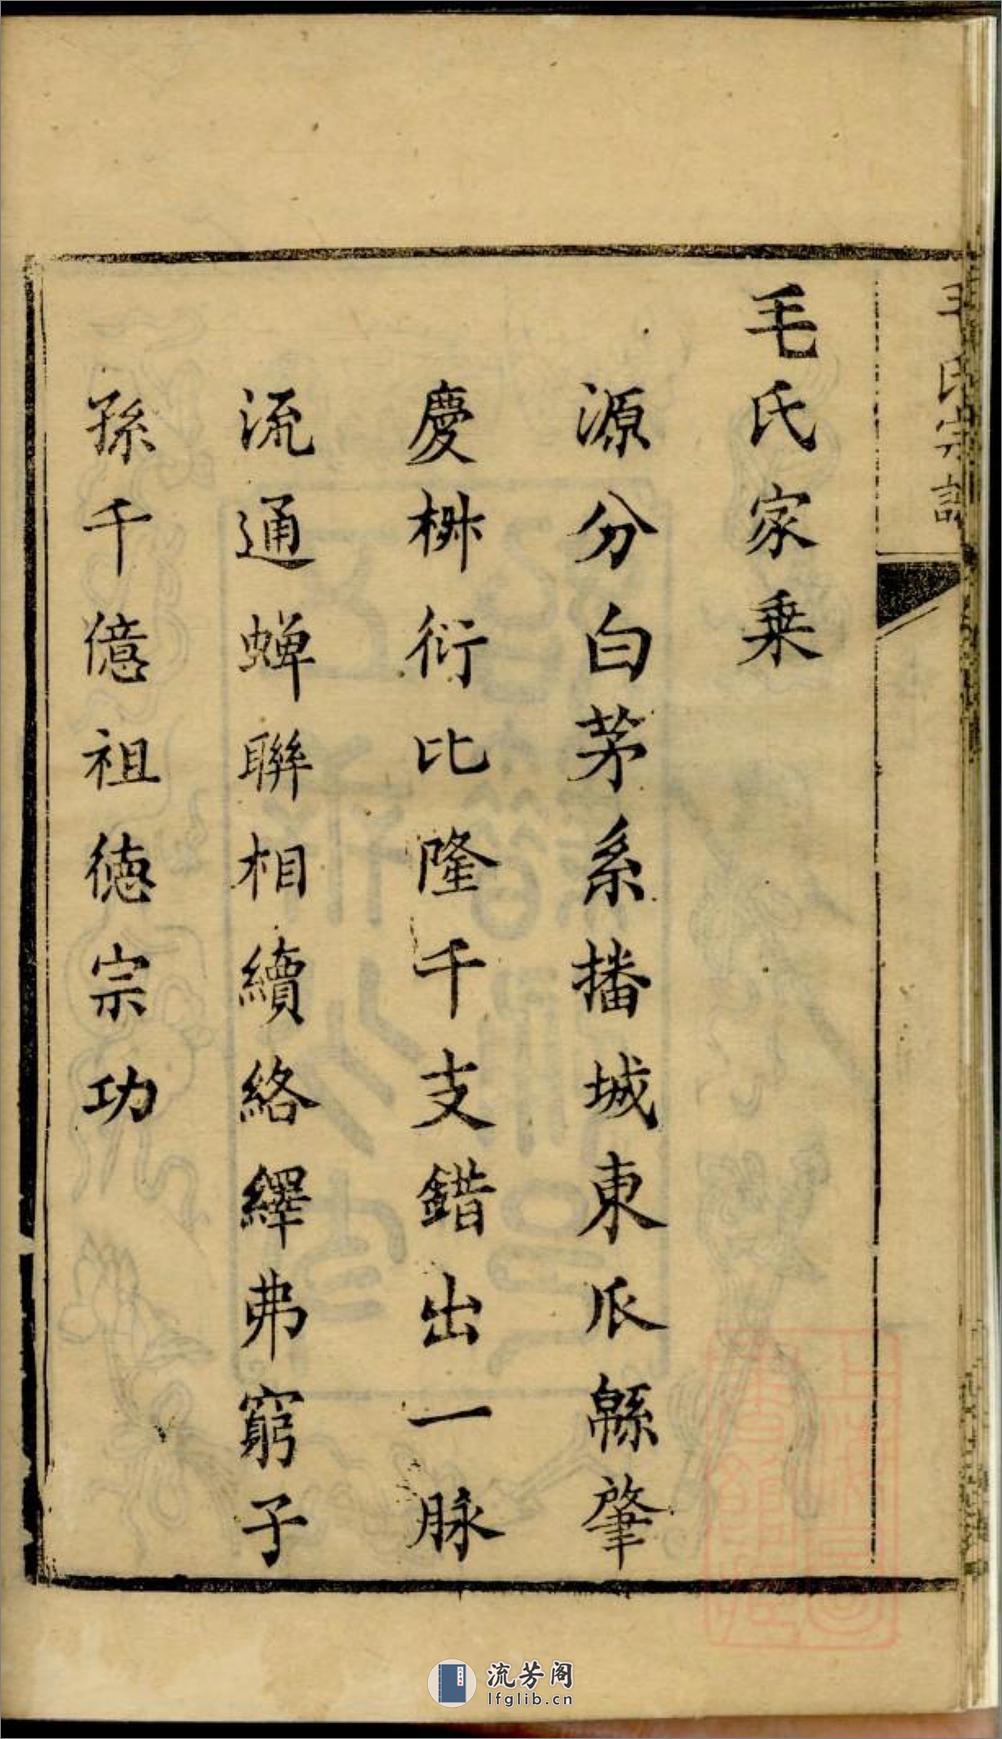 毛氏宗譜
毛氏家乗
源分白茅系播城東瓜緜肇
慶椒衍比隆千支錯出一脉
流通蝉聯相續絡繹弗窮子
孫千億祖徳宗功
流芳阁
lfglib.cn